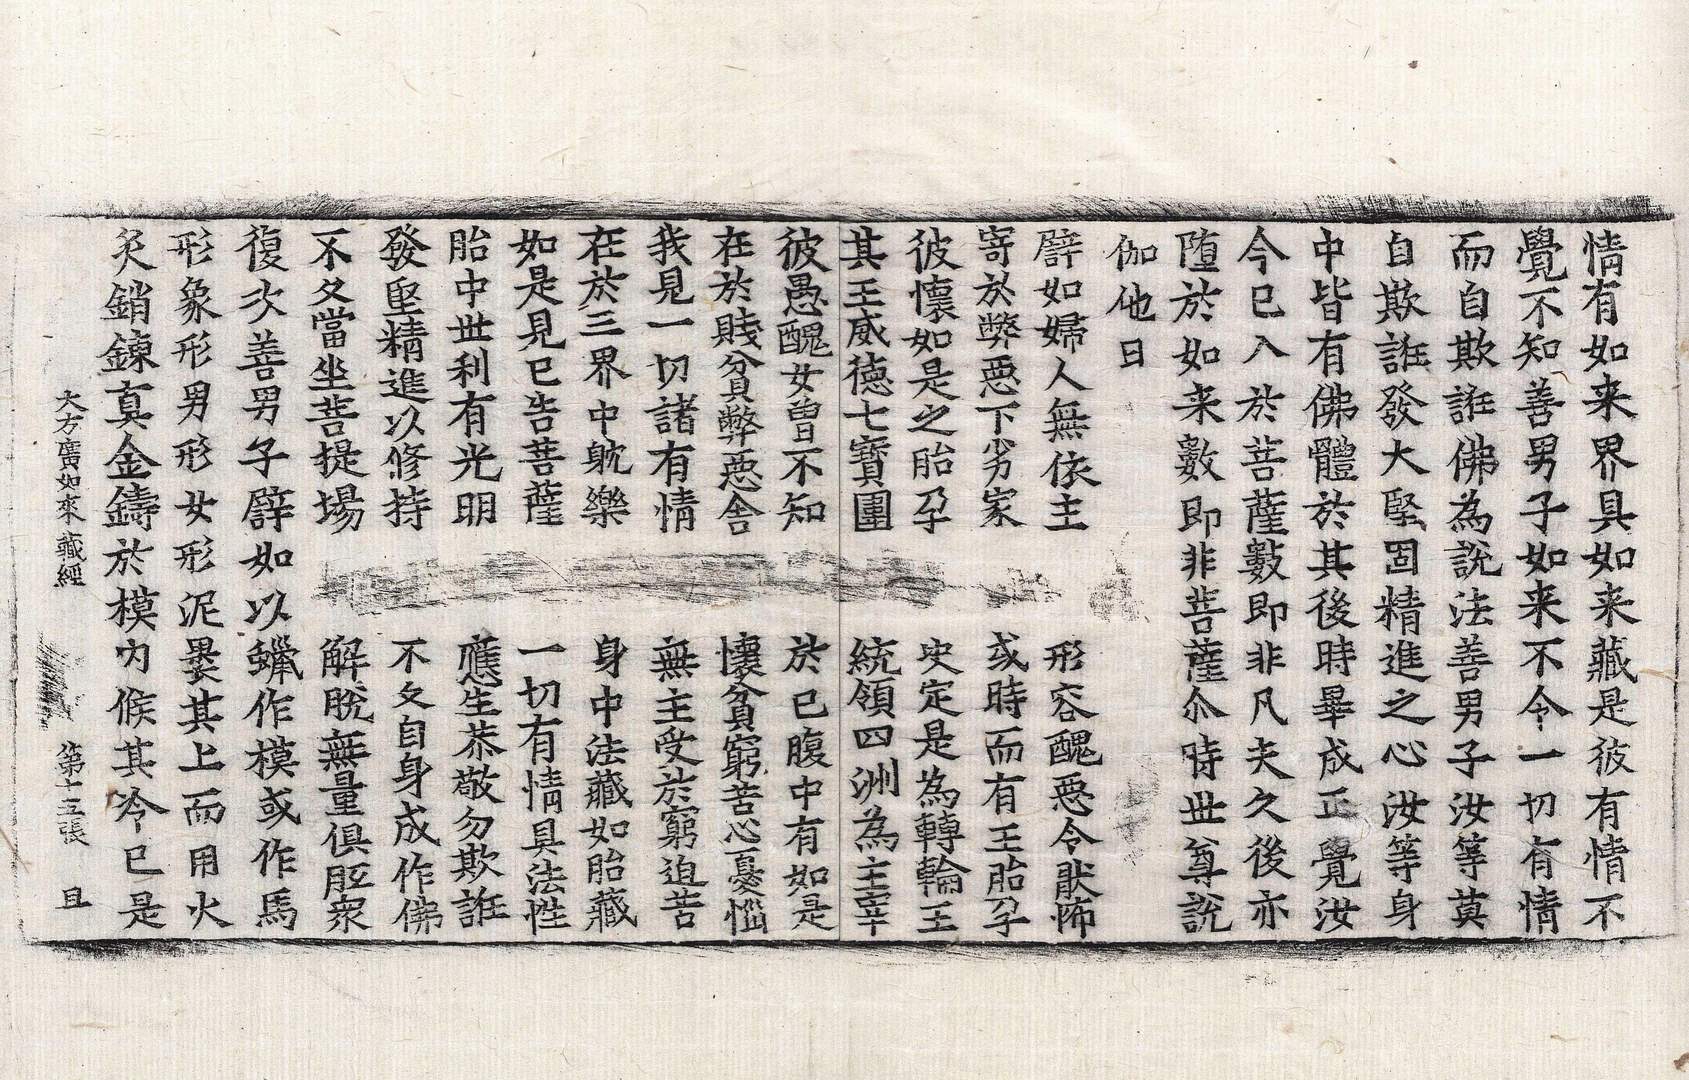 情有如来界具如来藏是彼有情不
覺不知善男子如来不令一切有情
而自欺誑佛為說法善男子汝等莫
自欺誑發大堅固精進之心汝等身
中皆有佛體於其後時畢成正覺汝
今已入於菩薩數即非凡夫久後亦
墮於如来數即非菩薩尒時世尊說
伽他曰
譬如婦人無依主 形容醜惡令猒怖
寄於弊惡下劣家 或時而有王胎孕
彼懷如是之胎孕 決定是為轉輪王
其王威德七寶圍 統領四洲為主宰
彼愚醜女曽不知 於已腹中有如是
在於賤貧弊惡舍 懷貧窮苦心憂惱
我見一切諸有情 無主受於窮迫苦
在於三界中躭樂 身中法藏如胎藏
如是見已告菩薩 一切有情具法性
胎中世利有光明 應生恭敬勿欺誑
發堅精進以修持 不久自身成作佛
不久當坐菩提場 解脫無量俱胝衆
復次善男子譬如以蠟作模或作馬
形象形男形女形泥褁其上而用火
炙銷鍊真金鑄於模內候其冷已是
大方廣如來藏經 第十五張 且